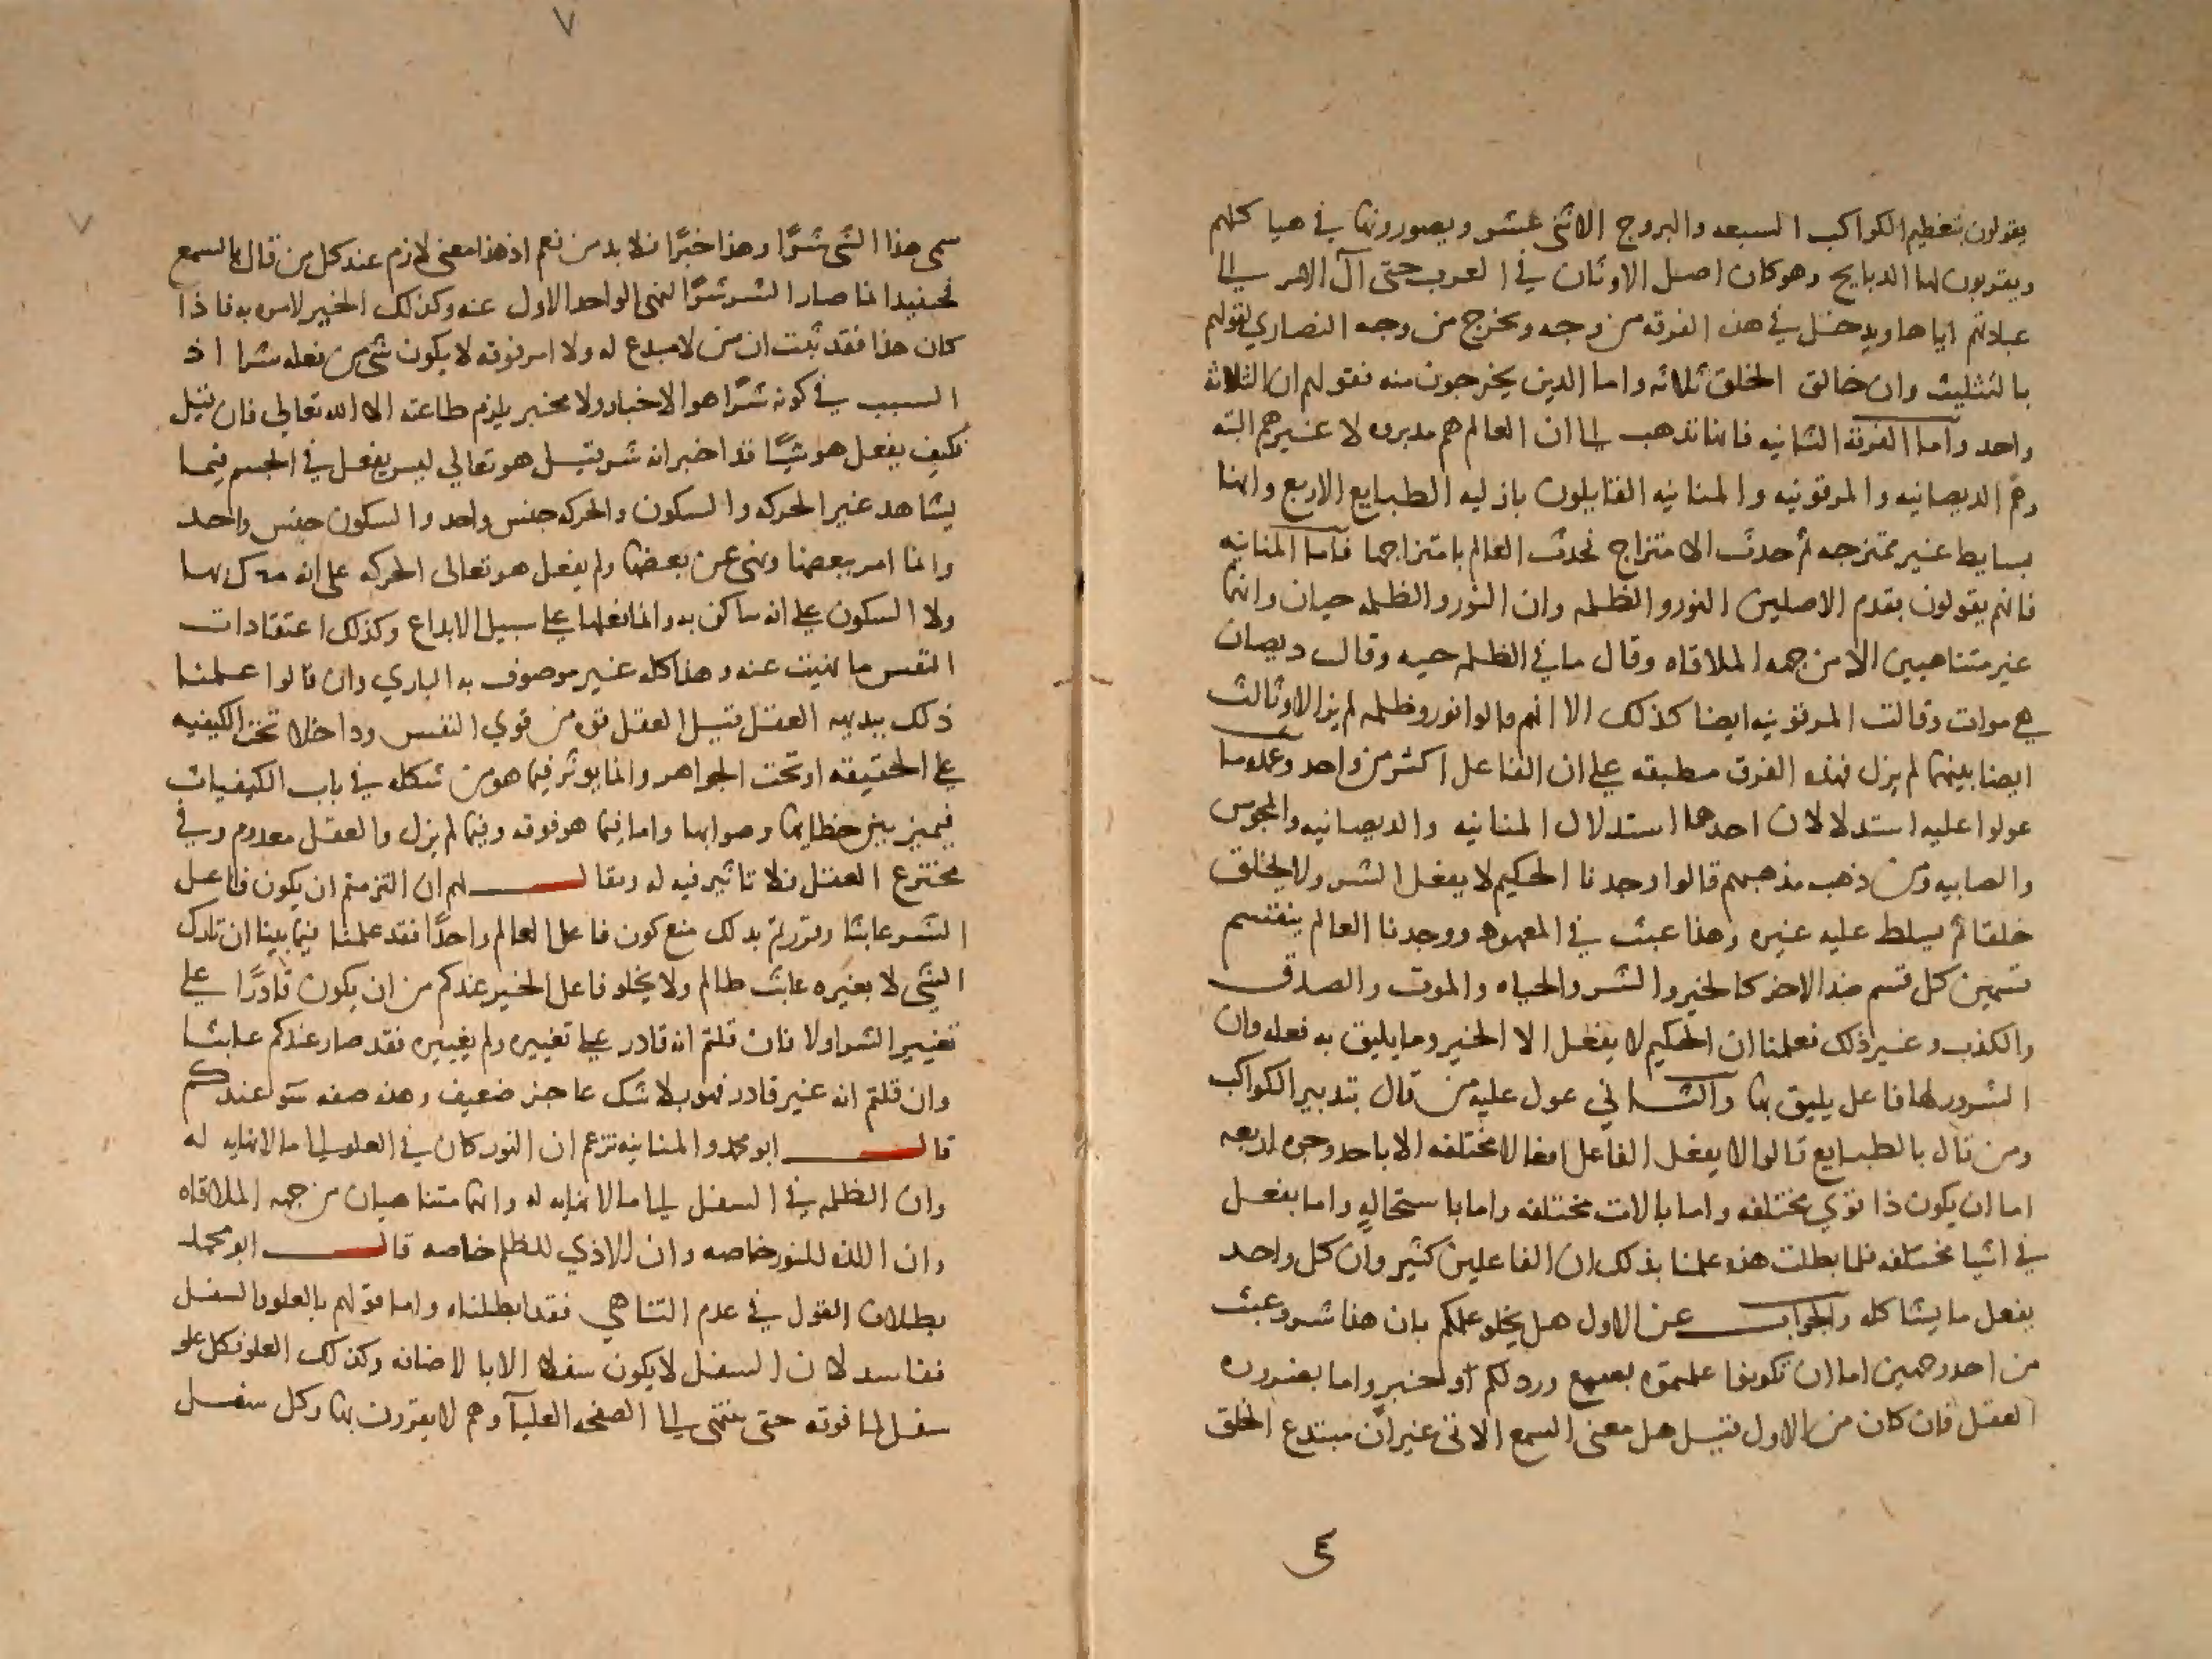 يقولون بتعظيم الكواكب السبعه والبروج الاثنى عشر ويصورونها في هياكلهم
ويقربون لها الدبايح وهو كان اصل الاوثان في العرب حتى آل الامر الى
عبادتهم اياها ويدخل في هذه الفرقه من وجه ويخرج من وجه النصاري لقولهم
بالتثليث وان خالق الخلق ثلاثه واما الدين يخرجون منه فقولهم ان الثلاثه
واحد وأما الفرقه الثانيه فانها تذهب الى ان العالم هم مدبروه لا غيرهم البته
وهم الديصانيه والمرقونيه والمنانيه القايلون بازليه الطبايع الاربع وانها
بسايط غير ممتزجه ثم حدث الامتزاج فحدث العالم بامتزاجها فأما المنانيه
فانهم يقولون بقدم الاصلين النور والظلمه وان النور والظلمه حيان وانهما
غير متناهيين الا من جهه الملاقاه وقال ماني الظلمه حيه وقال ديصان
هي موات وقالت المرقونيه ايضا كذلك الا انهم قالوا نور وظلمه لم يزالا وثالث
ايضا بينهما لم يزل فهذه الفرق مطبقه على ان الفاعل اكثر من واحد وعمده ما
عولوا عليه استدلالان احدهما استدلال المنانيه والديصانيه والمجوس
والصابيه ومن ذهب مذهبهم قالوا وجدنا الحكيم لا يفعل الشر ولا يخلق
خلقا ثم يسلط عليه غيره وهذا عبث في المعهود ووجدنا العالم ينقسم
قسمين كل قسم ضد الاخر كالخير والشر والحياه والموت والصدق
والكذب وغير ذلك فعلمنا ان الحكيم لا يفعل الا الخير وما يليق به فعله وان
الشرور لها فاعل يليق بها والثاني عول عليه من قال بتدبير الكواكب
ومن قال بالطبايع قالوا لا يفعل الفاعل افعالا مختلفه الا باحد وجوه اربعه
اما ان يكون ذا قوي مختلفه واما بالات مختلفه واما باستحاله واما بفعل
في اشيا مختلفه فلما بطلت هذه علمنا بذلك ان الفاعلين كثير وان كل واحد
يفعل ما يشاكله والجواب عن الاول هل يخلو علمكم بان هذا شر وعبث
من احد وجهين اما ان تكونوا علمتوه بسمع ورد لكم او خبر واما بضروره
العقل فان كان من الاول قيل هل معنى السمع الاتى غير ان مبتدع الخلق
٤
٧
٧
سمى هذا الشى شرًا وهذا خيرًا فلا بد من نعم اذ هذا معنى لازم عند كل من قال بالسمع
فحينيد انما صار الشر شرًا لنهى الواحد الاول عنه وكذلك الخير لامره به فاذا
كان هذا فقد ثبت ان من لا مبدع له ولا امر فوقه لا يكون شي من فعله شرا اذ
السبب في كونه شرًا هو الاخبار ولا مخبر يلزم طاعته الا الله تعالي فان قيل
فكيف يفعل هو شيًا قد اخبر انه شر قيل هو تعالي ليس يفعل في الجسم فيما
يشاهد غير الحركه والسكون والحركه جنس واحد والسكون جنس واحد
وانما امر ببعضها ونهى عن بعضها ولم يفعل هو تعالى الحركه على انه متحرك بها
ولا السكون على انه ساكن به وانما فعلها على سبيل الابداع وكذلك اعتقادات
النفس ما نهيت عنه وهذا كله غير موصوف به الباري وان قالوا علمنا
ذلك ببديهه العقل قيل العقل قوه من قوي النفس وداخلا تحت الكيفيه
على الحقيقه او تحت الجواهر وانما يوثر فيما هو من شكله في باب الكيفيات
فيميز بين خطايها وصوابها واما فيما هو فوقه وفيما لم يزل والعقل معدوم وفي
مخترع العقل فلا تاثير فيه له ويقال لهم ان التزمتم ان يكون فاعل
الشر عابثا وقررتم بذلك منع كون فاعل العالم واحدًا فقد علمنا فيما بينا ان تارك
الشى لا يغيره عابث ظالم ولا يخلو فاعل الخير عندكم من ان يكون قادرًا على
تغيير الشر او لا فان قلتم انه قادر على تغييره ولم يغييره فقد صار عندكم عابثا
وان قلتم انه غير قادر فهو بلا شك عاجز ضعيف وهذه صفه سو عندكم
قال ابو محمد والمنانيه تزعم ان النور كان في العلو الى ما لا نهايه له
وان الظلمه في السفل الى ما لا نهايه له وانهما متناهيان من جهه الملاقاه
وان اللذه للنور خاصه وان الاذي للظلمه خاصه قال ابو محمد
بطلان القول في عدم التناهي فقد ابطلناه واما قولهم بالعلو والسفل
ففاسد لان السفل لا يكون سفلا الا بالاضافه وكذلك العلو فكل علو
سفل لما فوقه حتى ينتهى الى الصفحه العليآ وهم لا يقرون بها وكل سفل